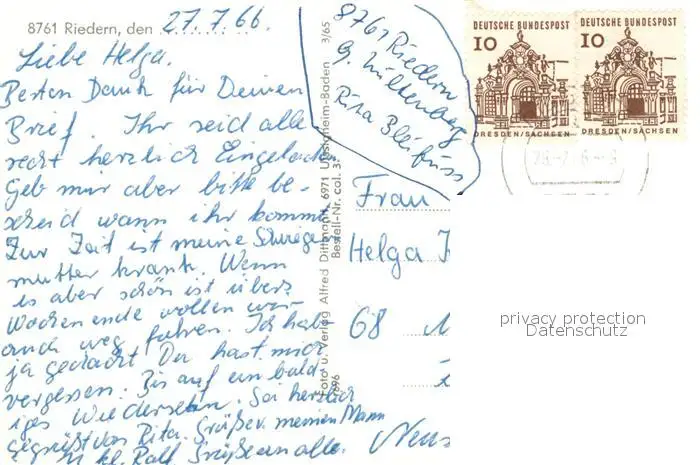 8761 Riedern, den 27.7.66.
Liebe Helga.
Besten Dank für Deinen
Brief. Ihr seid alle
recht herzlich Eingeladen
Geb mir aber bitte be-
scheid wann ihr kommt
Zur Zeit ist meine Schwieger
mutter krank. Wenn
es aber schön ist übers
Wochenende wollen wir
auch weg fahren. Ich hab
ja gedacht Du hast mich
vergessen. Bis auf ein bald
iges Wiedersehn. Sei herzlich
gegrüßt von Rita. Grüße v. meinen Mann
u. kl. Ralf. Grüße an alle.
3/65
Foto u. Verlag Alfred Dittmann, 6971 Unterbalbach-Baden
Bestell-Nr. col. 3
696
8761 Riedern
b. Miltenberg
Rita Bleifuss
DEUTSCHE BUNDESPOST
10
DRESDEN/SACHSEN
DEUTSCHE BUNDESPOST
10
DRESDEN/SACHSEN
Frau
Helga
68
privacy protection
Datenschutz